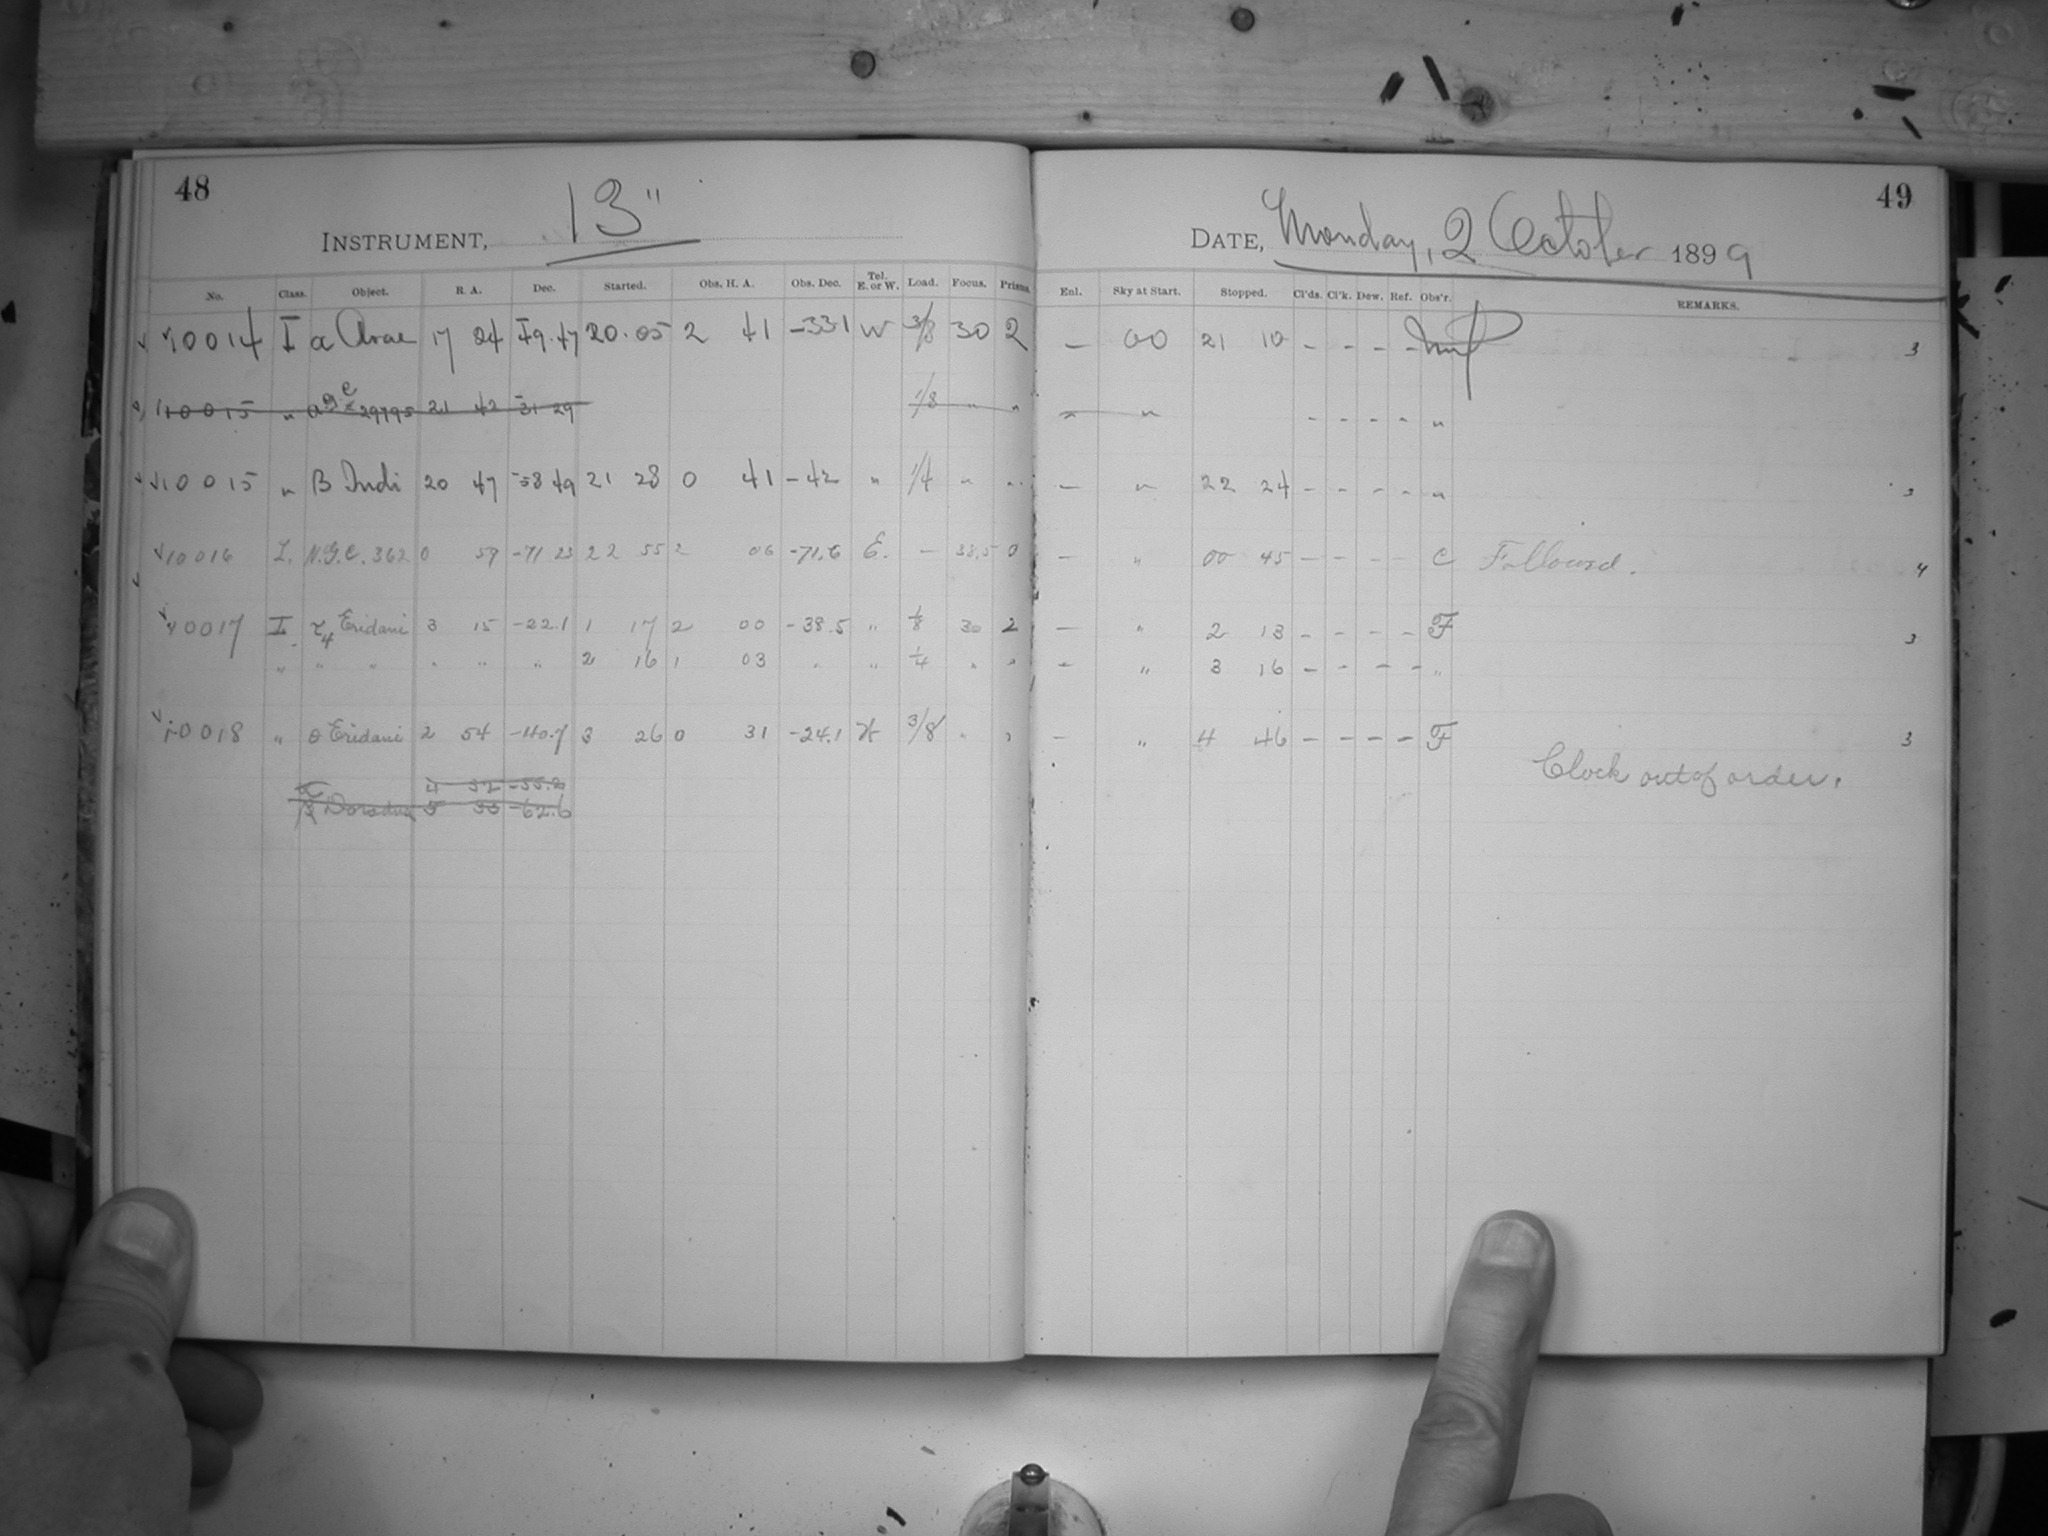 48
INSTRUMENT, 13"
No. Class. Object. R. A. Dec. Started. Obs. H. A. Obs. Dec. Tel. E. or W. Load. Focus. Prisms.
10014 I α Arae 17 24 -49.47 20.05 2 41 -33.1 W 3/8 30 2
10015 " 29795 21 42 -31 29 1/8 " "
10015 " B Indi 20 47 -58 49 21 28 0 41 -42 " 1/4 " "
10016 I. N.G.C. 362 0 59 -71 23 22 55 2 06 -71.6 E. — 38.5 0
10017 I τ4 Eridani 3 15 -22.1 1 17 2 00 -38.5 " 1/8 30 2
" " " " " " 2 16 1 03 " " 1/4 " "
10018 " θ Eridani 2 54 -40.7 3 26 0 31 -24.1 W 3/8 " "
4 32 -55.2
β Doradus 5 33 -62.6
49
DATE, Monday, 2 October 1899
Enl. Sky at Start. Stopped. Cl'ds. Cl'k. Dew. Ref. Obs'r. REMARKS.
— 00 21 10 - - - - 3
— " - - - - "
— " 22 24 - - - - " 3
— " 00 45 - - - - C Followed. 4
— " 2 13 - - - - F 3
— " 3 16 - - - - "
— " 4 46 - - - - F 3
Clock out of order.